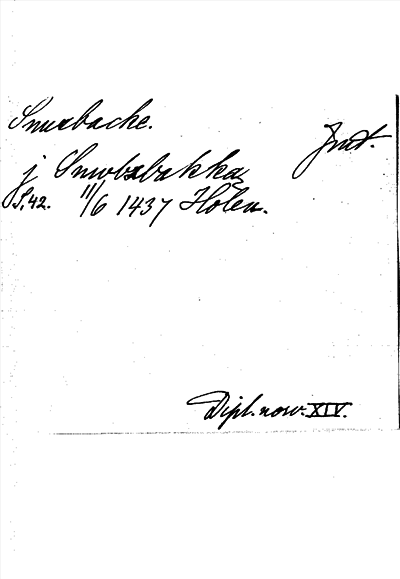 Snusbacke.
Jmt.
j Snwlsbakka
S, 42. 11/6 1437 Holen.
Dipl. norv. XIV.